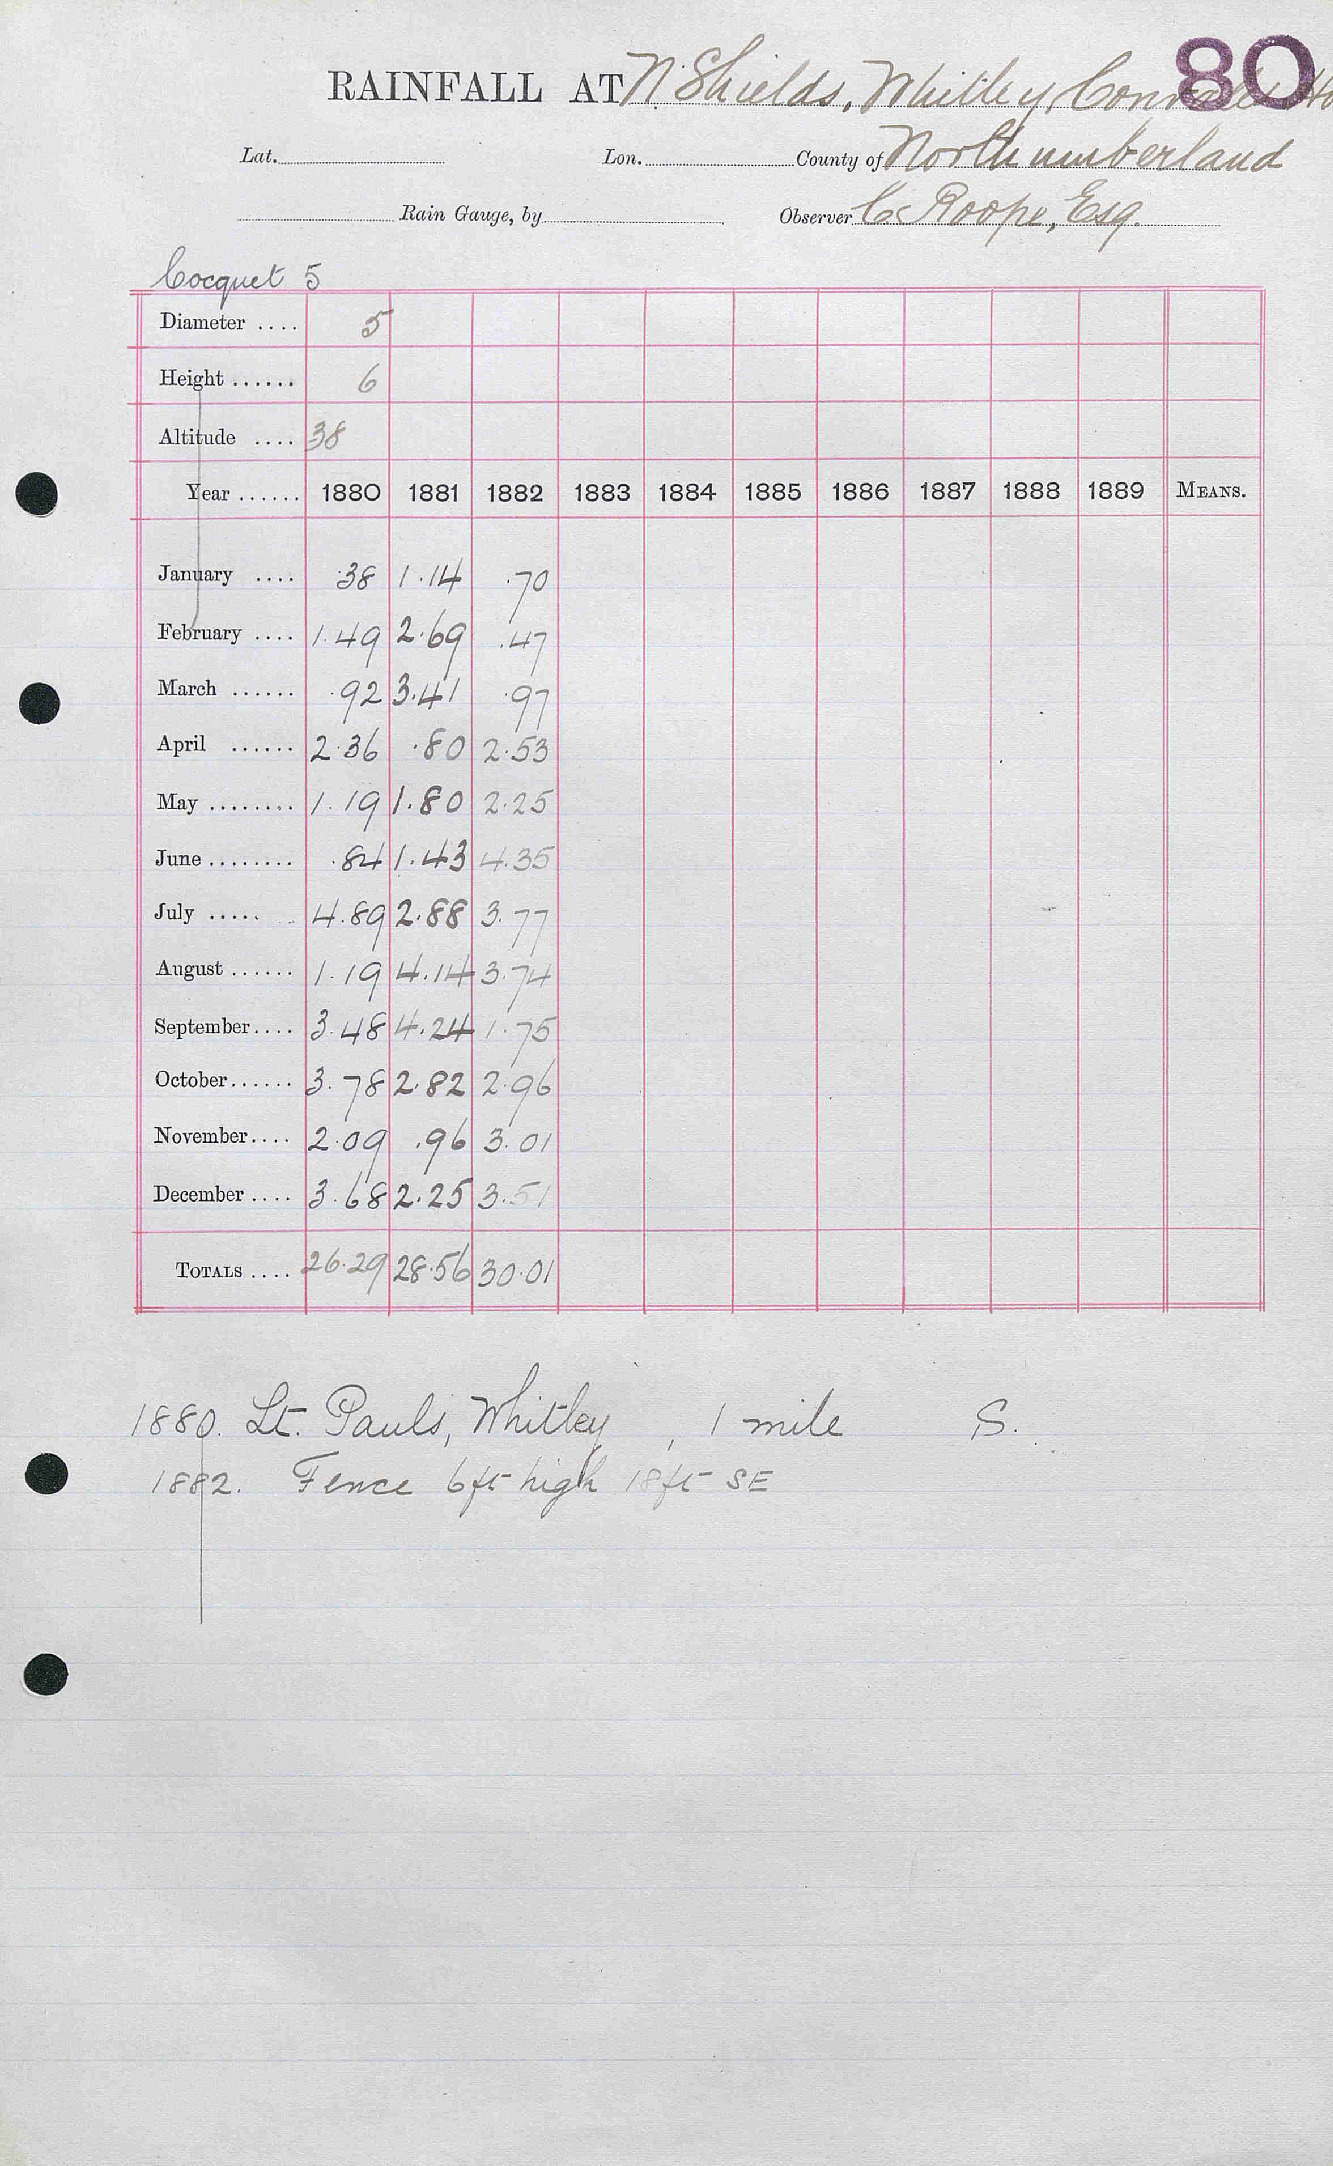 80
RAINFALL AT N. Shields, Whitley, Ho
Lat. Lon. County of Northumberland
Rain Gauge, by Observer C. Roope, Esq.
Cocquet 5
Diameter .... 5
Height ...... 6
Altitude .... 38
Year ...... 1880 1881 1882 1883 1884 1885 1886 1887 1888 1889 MEANS.
January .... .38 1.14 .70
February .... 1.49 2.69 .47
March ...... .92 3.41 .97
April ...... 2.36 .80 2.53
May ........ 1.19 1.80 2.25
June ........ .84 1.43 4.35
July ..... 4.89 2.88 3.77
August ...... 1.19 4.14 3.74
September .... 3.48 4.24 1.75
October ...... 3.78 2.82 2.96
November .... 2.09 .96 3.01
December .... 3.68 2.25 3.51
TOTALS .... 26.29 28.56 30.01
1880. St. Pauls, Whitley, 1 mile S.
1882. Fence 6ft high 18ft SE